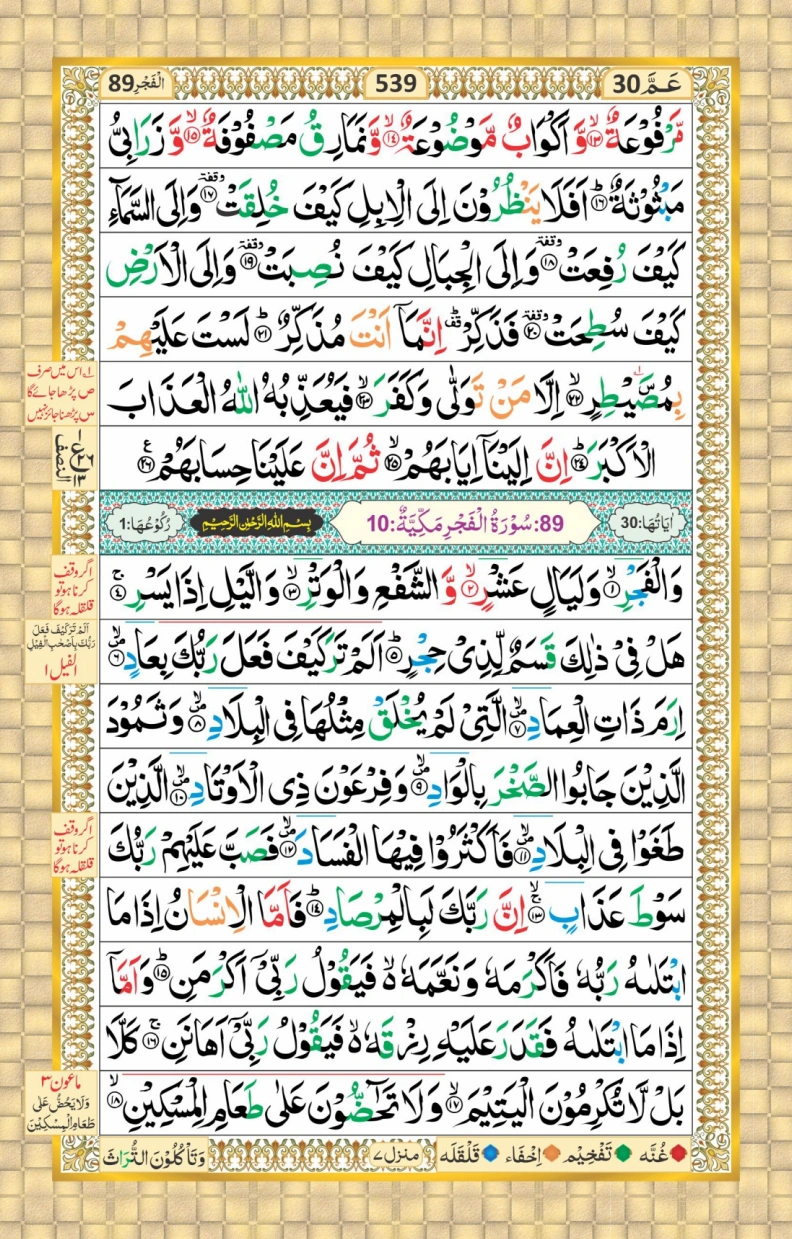 عَمَّ 30
539
اَلْفَجْرِ 89
مَّرْفُوْعَةٌ ۙ﴿۱۳﴾ وَّ اَكْوَابٌ مَّوْضُوْعَةٌ ۙ﴿۱۴﴾ وَّ نَمَارِقُ مَصْفُوْفَةٌ ۙ﴿۱۵﴾ وَّ زَرَابِیُّ
مَبْثُوْثَةٌ ؕ﴿۱۶﴾ اَفَلَا یَنْظُرُوْنَ اِلَی الْاِبِلِ كَیْفَ خُلِقَتْ وقفة ﴿۱۷﴾ وَاِلَی السَّمَآءِ
كَیْفَ رُفِعَتْ وقفة ﴿۱۸﴾ وَاِلَی الْجِبَالِ كَیْفَ نُصِبَتْ وقفة ﴿۱۹﴾ وَاِلَی الْاَرْضِ
كَیْفَ سُطِحَتْ وقفة ﴿۲۰﴾ فَذَكِّرْ ؕ قف اِنَّمَاۤ اَنْتَ مُذَكِّرٌ ؕ﴿۲۱﴾ لَسْتَ عَلَیْهِمْ
بِمُصَۜیْطِرٍ ۙ﴿۲۲﴾ اِلَّا مَنْ تَوَلّٰی وَكَفَرَ ۙ﴿۲۳﴾ فَیُعَذِّبُهُ اللّٰهُ الْعَذَابَ
الْاَكْبَرَ ؕ﴿۲۴﴾ اِنَّ اِلَیْنَاۤ اِیَابَهُمْ ۙ﴿۲۵﴾ ثُمَّ اِنَّ عَلَیْنَا حِسَابَهُمْ ﴿۲۶﴾ ع
لہ اس میں صرف
ص پڑھا جائے گا
س پڑھنا جائز نہیں
النصف
اٰیَاتُهَا:30
89:سُوْرَةُ الْفَجْرِ مَكِّیَّةٌ:10
بِسْمِ اللّٰهِ الرَّحْمٰنِ الرَّحِیْمِ
رُكُوْعُهَا:1
وَالْفَجْرِ ۙ﴿۱﴾ وَلَیَالٍ عَشْرٍ ۙ﴿۲﴾ وَّ الشَّفْعِ وَالْوَتْرِ ۙ﴿۳﴾ وَالَّیْلِ اِذَا یَسْرِ ۚ﴿۴﴾
هَلْ فِیْ ذٰلِكَ قَسَمٌ لِّذِیْ حِجْرٍ ؕ﴿۵﴾ اَلَمْ تَرَ كَیْفَ فَعَلَ رَبُّكَ بِعَادٍ ۪ۙ﴿۶﴾
اِرَمَ ذَاتِ الْعِمَادِ ۪ۙ﴿۷﴾ الَّتِیْ لَمْ یُخْلَقْ مِثْلُهَا فِی الْبِلَادِ ۪ۙ﴿۸﴾ وَثَمُوْدَ
الَّذِیْنَ جَابُوا الصَّخْرَ بِالْوَادِ ۪ۙ﴿۹﴾ وَفِرْعَوْنَ ذِی الْاَوْتَادِ ۪ۙ﴿۱۰﴾ الَّذِیْنَ
طَغَوْا فِی الْبِلَادِ ۪ۙ﴿۱۱﴾ فَاَكْثَرُوْا فِیْهَا الْفَسَادَ ۪ۙ﴿۱۲﴾ فَصَبَّ عَلَیْهِمْ رَبُّكَ
سَوْطَ عَذَابٍ ۚۙ﴿۱۳﴾ اِنَّ رَبَّكَ لَبِالْمِرْصَادِ ؕ﴿۱۴﴾ فَاَمَّا الْاِنْسَانُ اِذَا مَا
ابْتَلٰىهُ رَبُّهٗ فَاَكْرَمَهٗ وَنَعَّمَهٗ ۬ۙ فَیَقُوْلُ رَبِّیْۤ اَكْرَمَنِ ؕ﴿۱۵﴾ وَاَمَّاۤ
اِذَا مَا ابْتَلٰىهُ فَقَدَرَ عَلَیْهِ رِزْقَهٗ ۬ۙ فَیَقُوْلُ رَبِّیْۤ اَهَانَنِ ۚ﴿۱۶﴾ كَلَّا
بَلْ لَّا تُكْرِمُوْنَ الْیَتِیْمَ ۙ﴿۱۷﴾ وَلَا تَحٰٓضُّوْنَ عَلٰی طَعَامِ الْمِسْكِیْنِ ۙ﴿۱۸﴾
اگر وقف
کرنا ہو تو
قلقلہ ہوگا
اَلَمْ تَرَ كَیْفَ فَعَلَ
رَبُّكَ بِاَصْحٰبِ الْفِیْلِ
الفیل ۱
اگر وقف
کرنا ہو تو
قلقلہ ہوگا
ماعون ۳
وَلَا یَحُضُّ عَلٰی
طَعَامِ الْمِسْكِیْنِ
غُنَّه تَفْخِیْم اِخْفَاء قَلْقَلَه
منزل ۷
وَتَاْكُلُوْنَ التُّرَاثَ